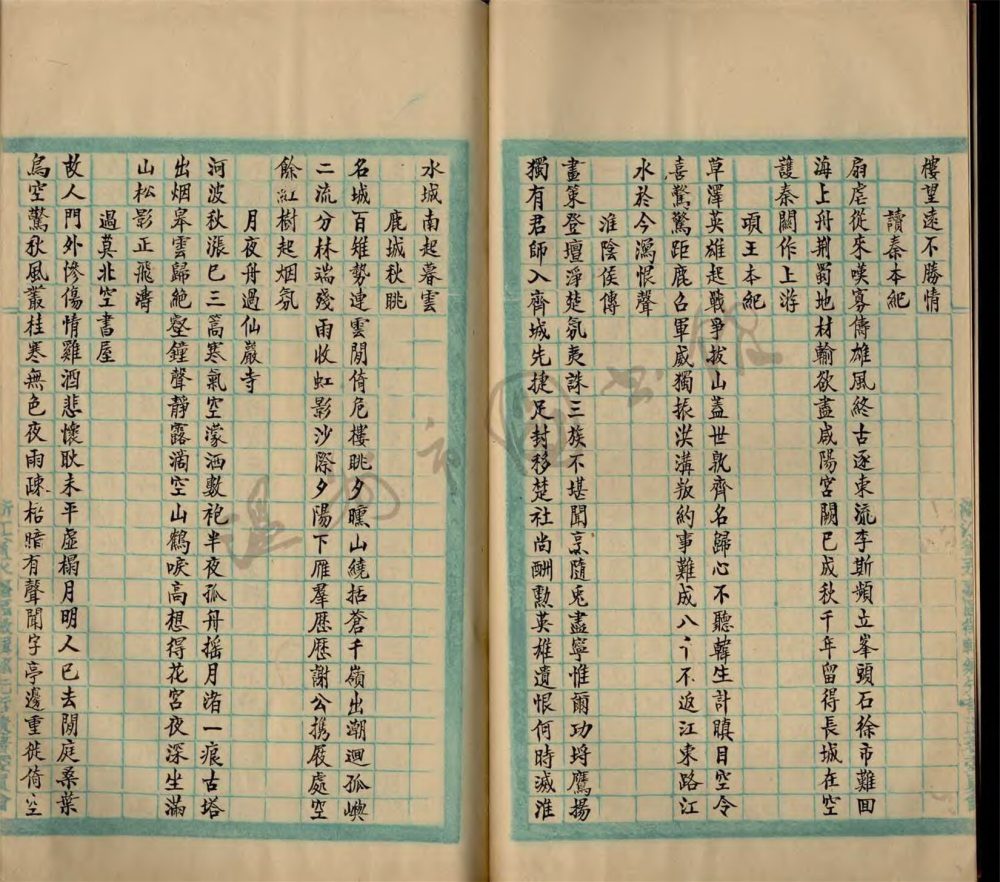 樓望遠不勝情
讀秦本紀
扇虐從來嘆寡儔雄風終古逐東流李斯頻立峯頭石徐市難回
海上舟荆蜀地材輸欲盡咸陽宮闕已成秋千年留得長城在空
護秦關作上游
項王本紀
草澤英雄起戰爭拔山蓋世孰齊名歸心不聽韓生計瞋目空令
喜驚驚距鹿召軍威獨振洪溝叛約事難成八千不返江東路江
水於今瀉恨聲
淮陰侯傳
畫策登壇淨楚氛夷誅三族不堪聞烹隨兎盡寧惟爾功埒鷹揚
獨有君師入齊城先捷足封移楚社尚酬勲英雄遺恨何時滅淮
水城南起暮雲
鹿城秋眺
名城百雉勢連雲閒倚危樓眺夕曛山繞括蒼千嶺出潮迴孤嶼
二流分林端殘雨收虹影沙際夕陽下雁羣歷歷謝公携屐處空
餘紅樹起烟氛
月夜舟過仙巖寺
河波秋漲已三篙寒氣空濛洒敷袍半夜孤舟摇月渚一痕古塔
出烟皋雲歸絶壑鐘聲靜露滴空山鶴唳高想得花宮夜深坐滿
山松影正飛濤
過莫北空書屋
故人門外慘傷情雞酒悲懷耿未平虚榻月明人已去閒庭桑葉
烏空驚秋風叢桂寒無色夜雨疎桐暗有聲聞字亭邊重徙倚空